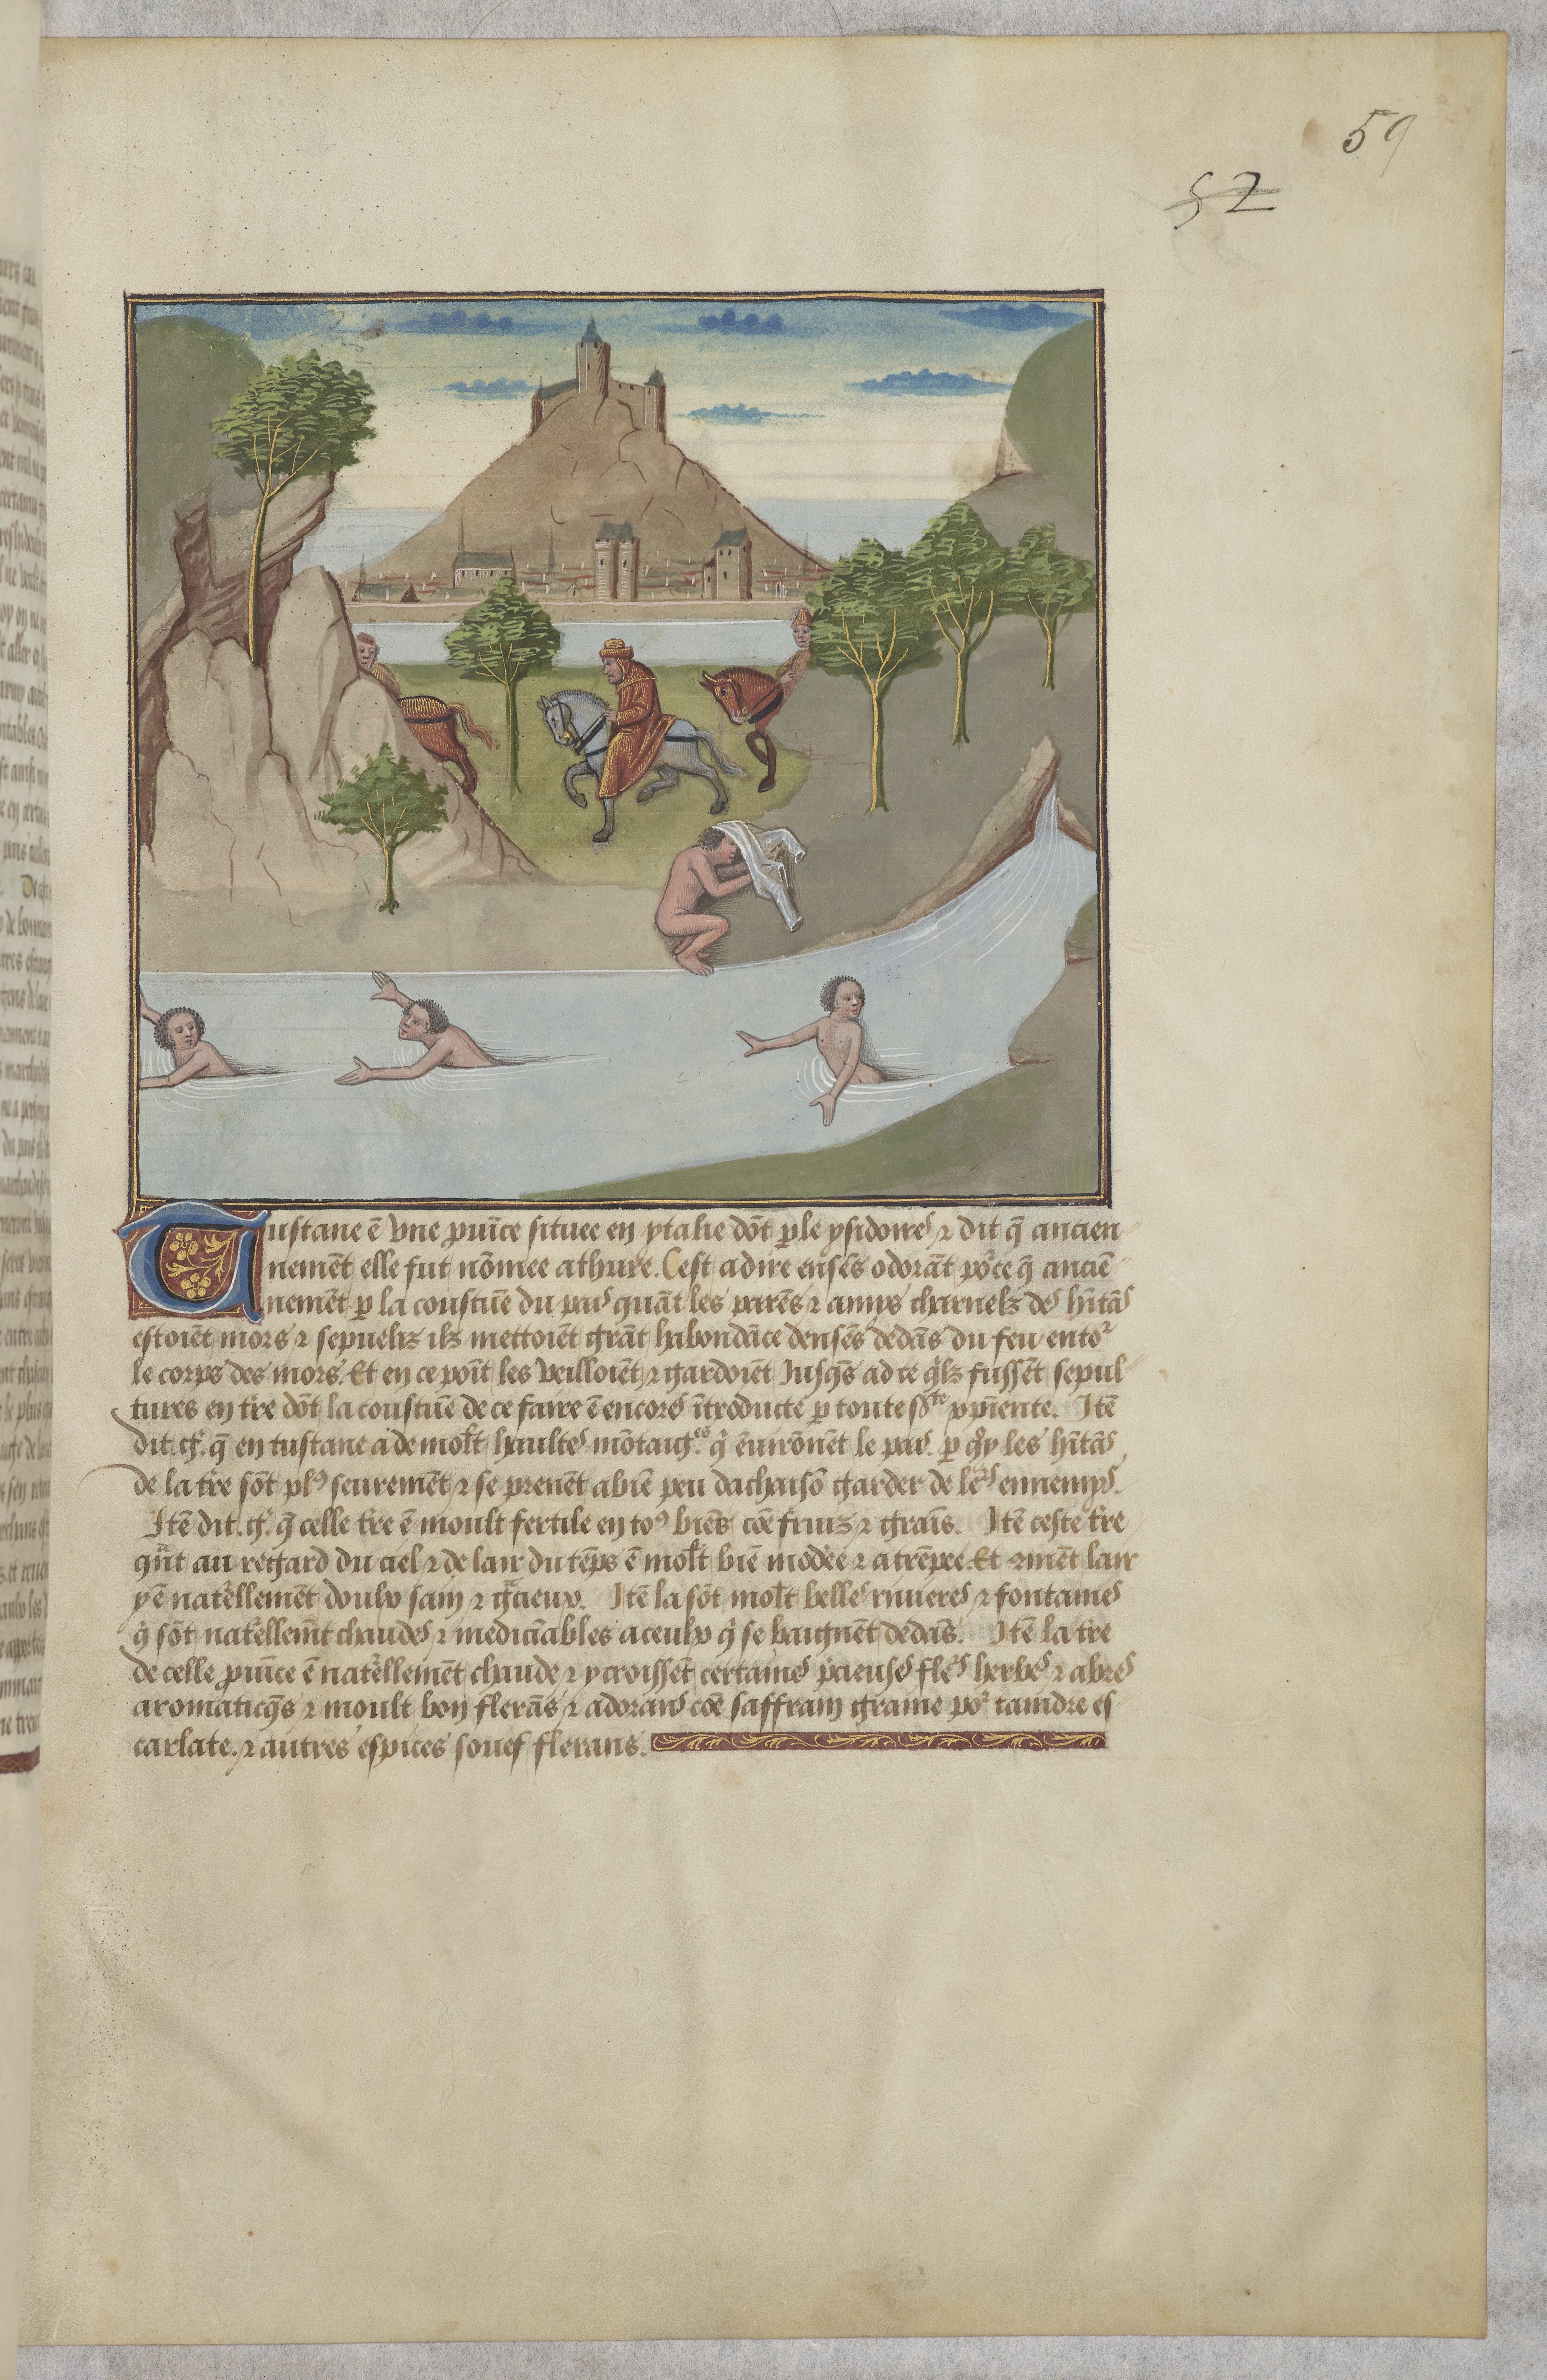 59
52
Tustane ē vne ꝓuīce situee en ytalie dōt ꝑle ysidoire ⁊ dit q̄ ancien
nemēt elle fut nōmee athure. Cest adire ensēs odorāt poʳce q̄ anciē
nemēt ꝑ la coustūe du pais quāt les parēs ⁊ amys charnelz des hītās
estoiēt mors ⁊ sepueliz ilz mettoiēt grāt habondāce densēs dedās du feu entoʳ
le corps des mors. Et en ce poīt les veilloiēt ⁊ gardoiēt Jusq̄s ad ce q̄lz fussēt sepul
tures en tr̄e dōt la coustūe de ce faire ē encores ītroducte ꝑ toute sc̄te xp̄iente. Jtē
dit. q̄ en tustane a de mol̄t haultes mōtaig.es q̄ ēnuirōnēt le pais. ꝑ q̄y les hītās
de la tr̄e sōt plꝰ seuremēt ⁊ se prenēt abiē peu dachaisō garder de leʳs ennemys.
Jtē dit. q̄ celle tr̄e ē moult fertile en toꝰ biēs cōe fruiz ⁊ graīs. Jtē ceste tr̄e
quāt au regard du ciel ⁊ de lair du tēps ē mol̄t biē modēe ⁊ atrēpee. Et ꝯmēt lair
y ē natēllemēt doulx sain ⁊ gͣcieux. Jtē la sōt mol̄t belles riuieres ⁊ fontaines
q̄ sōt natēllemēt chaudes ⁊ mediciābles aceulx q̄ se baignēt dedās. Jtē la tr̄e
de celle ꝓuīce ē natēllemēt chaude ⁊ y croissēt certaines p̄cieuses fleʳs herbes ⁊ abres
aromaticq̄s ⁊ moult bon flerās ⁊ adorans cōe saffrain graine poʳ taindre es
carlate. ⁊ autres espices souef flerans.